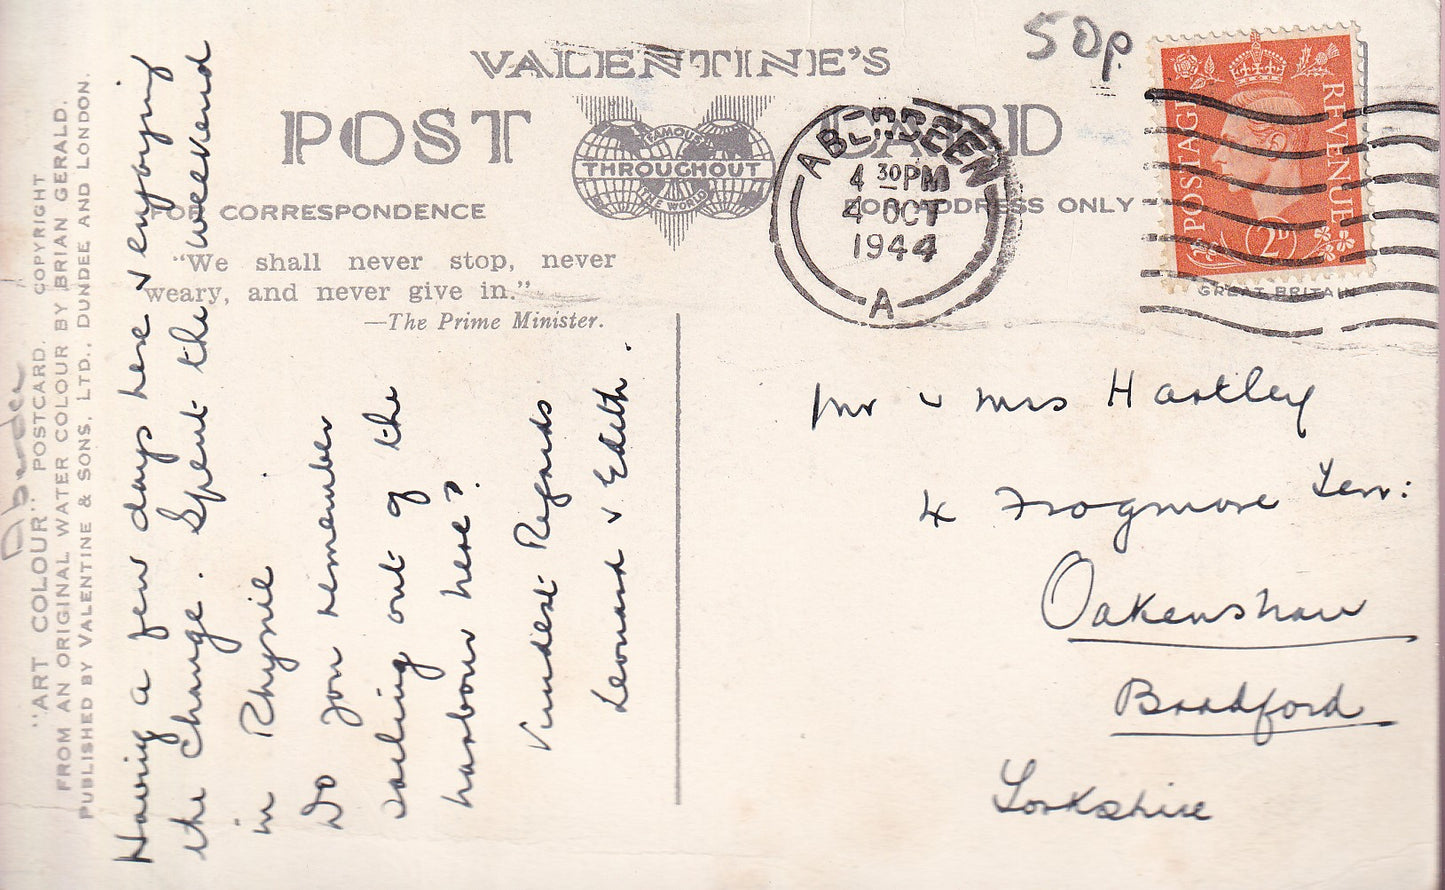 VALENTINE'S
POST CARD
FAMOUS
THROUGHOUT
THE WORLD
FOR CORRESPONDENCE
FOR ADDRESS ONLY
"We shall never stop, never
weary, and never give in."
—The Prime Minister.
50p
ABERDEEN
4 30 PM
4 OCT
1944
A
POSTAGE
REVENUE
2D
GREAT BRITAIN
"ART COLOUR" POSTCARD. COPYRIGHT
FROM AN ORIGINAL WATER COLOUR BY BRIAN GERALD.
PUBLISHED BY VALENTINE & SONS, LTD., DUNDEE AND LONDON.
Having a few days here & enjoying
the change. Spent the weekend
in Rhynie
Do you remember
sailing out of the
harbour here?
Kindest Regards
Leonard & Edith.
Mr & Mrs Hartley
4 Frogmore Terr:
Oakenshaw
Bradford
Yorkshire